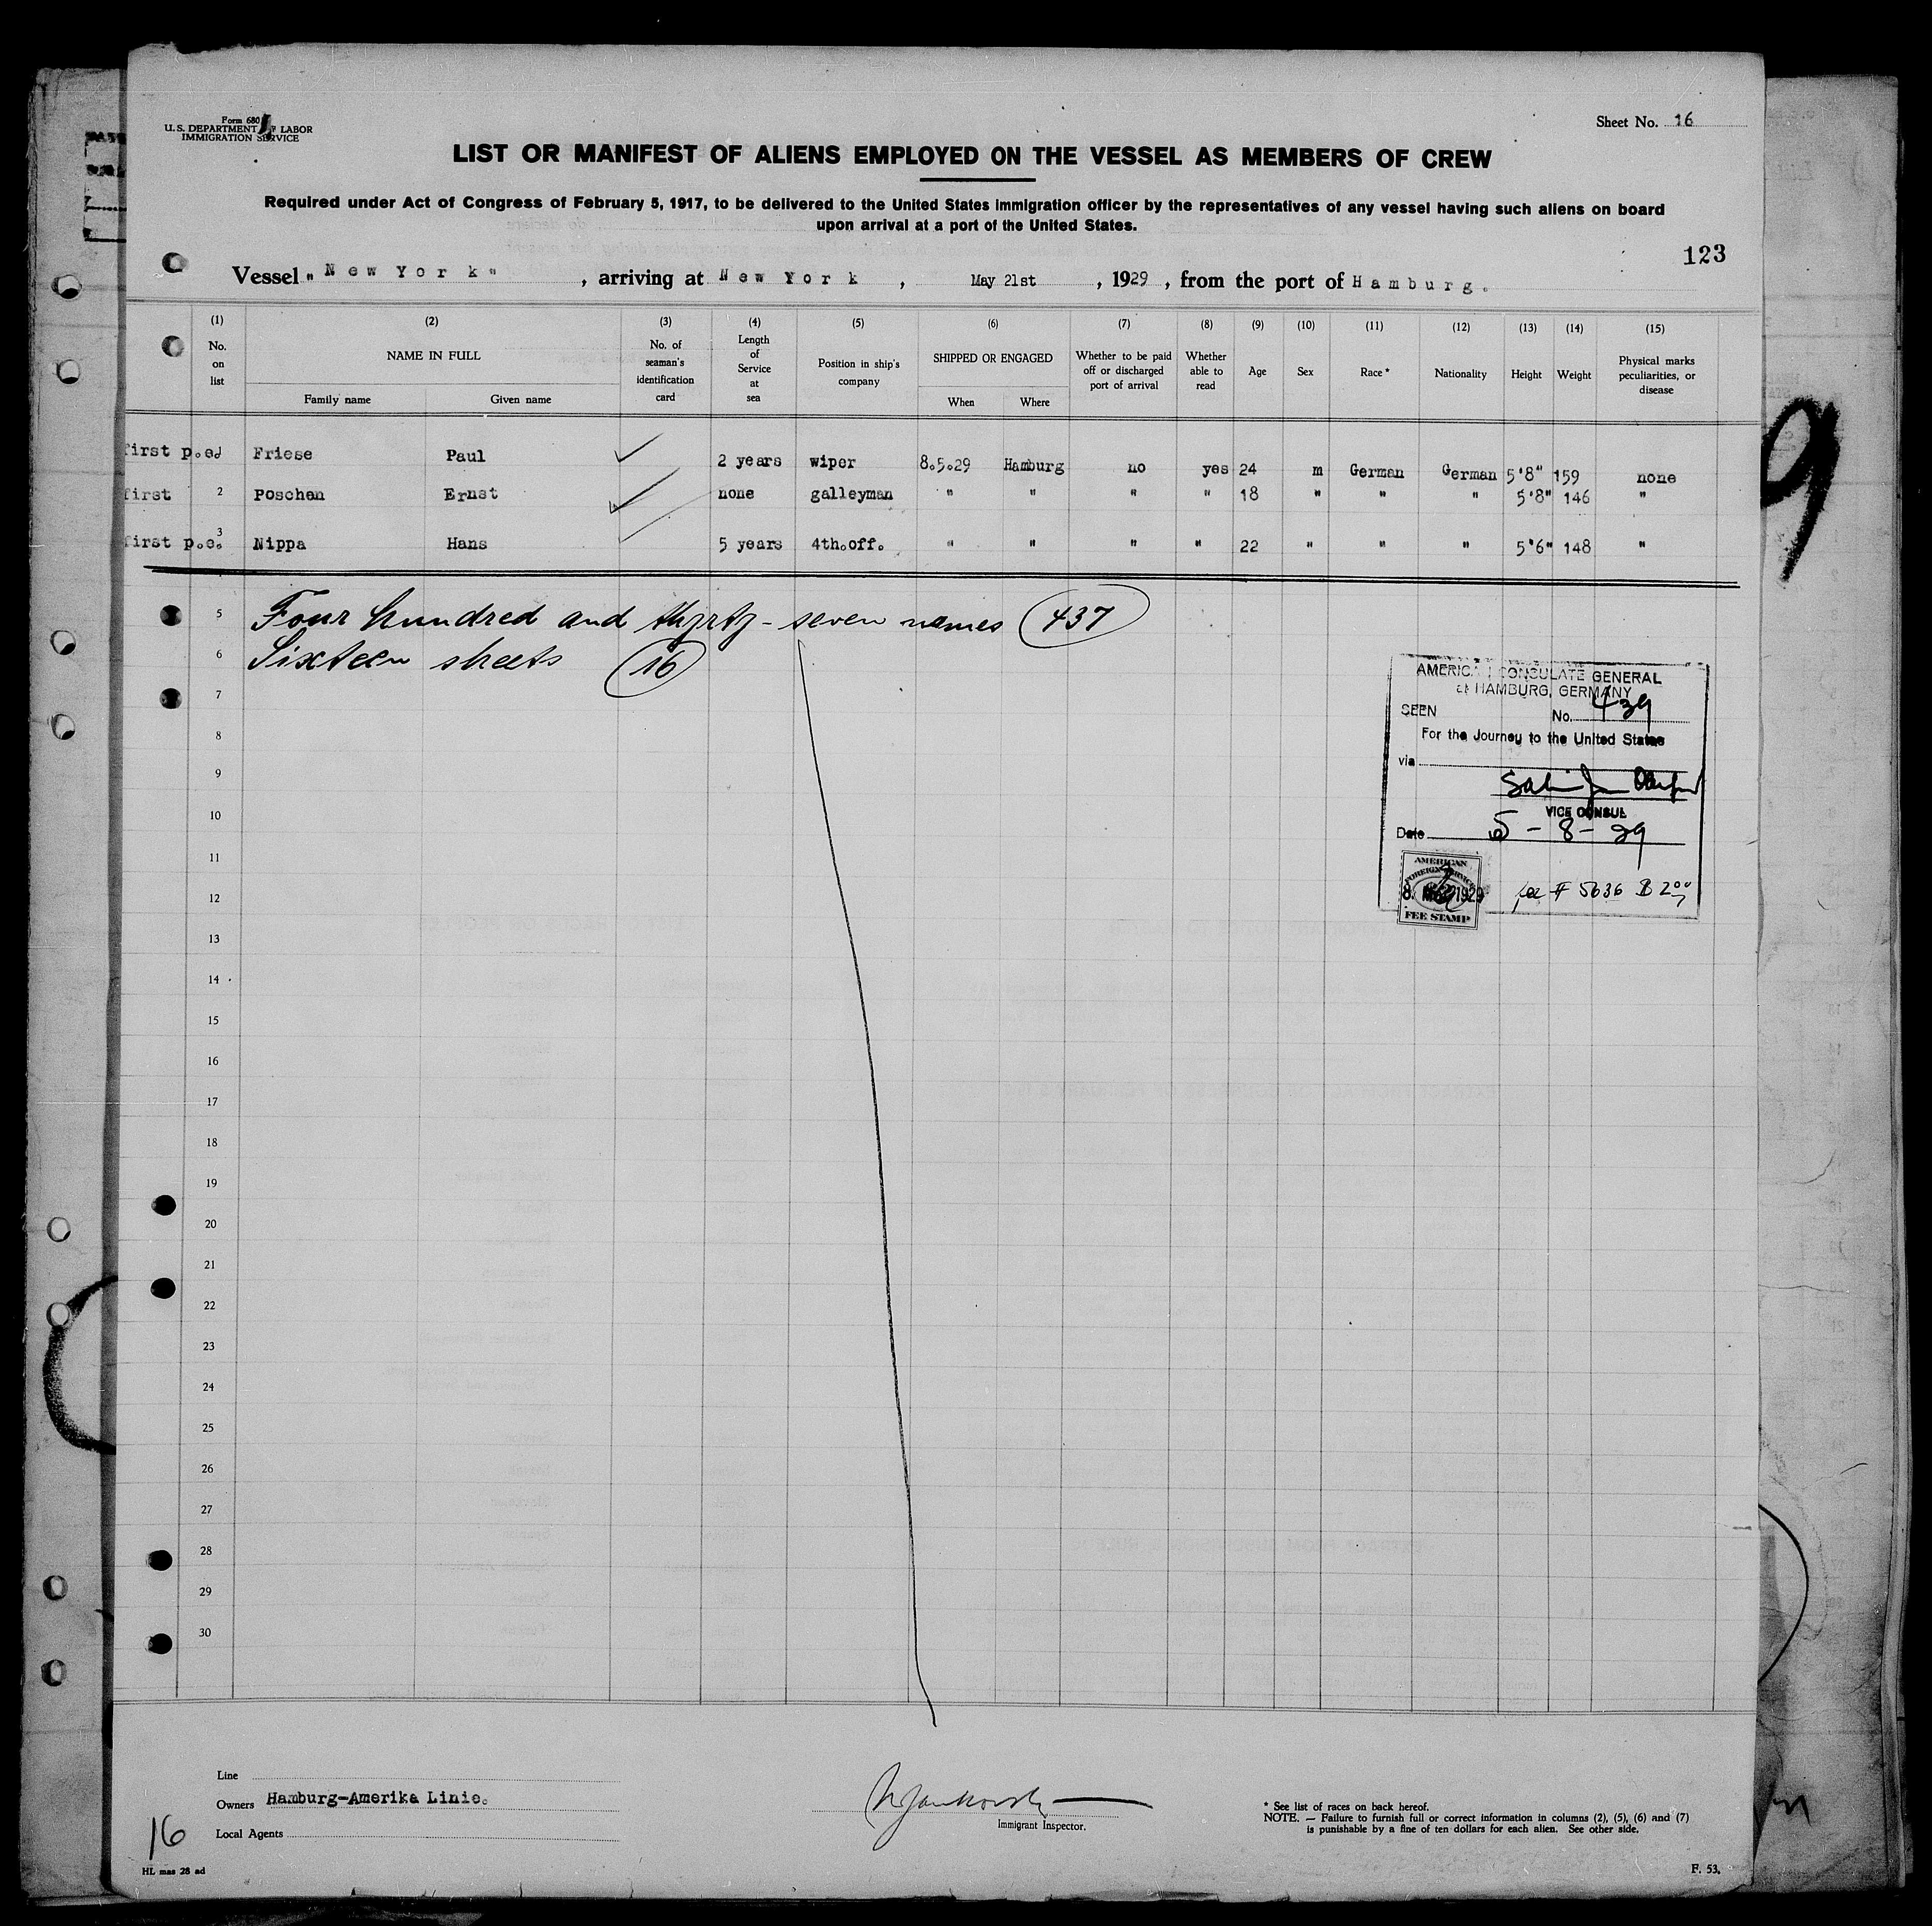 Form 680
U. S. DEPARTMENT OF LABOR
IMMIGRATION SERVICE
Sheet No. 16
LIST OR MANIFEST OF ALIENS EMPLOYED ON THE VESSEL AS MEMBERS OF CREW
Required under Act of Congress of February 5, 1917, to be delivered to the United States immigration officer by the representatives of any vessel having such aliens on board
upon arrival at a port of the United States.
123
Vessel "New York", arriving at New York, May 21st, 1929, from the port of Hamburg.
(1) (2) (3) (4) (5) (6) (7) (8) (9) (10) (11) (12) (13) (14) (15)
No. on list
NAME IN FULL
Family name Given name
No. of seaman's identification card
Length of Service at sea
Position in ship's company
SHIPPED OR ENGAGED
When Where
Whether to be paid off or discharged port of arrival
Whether able to read
Age
Sex
Race *
Nationality
Height
Weight
Physical marks peculiarities, or disease
first p.e. Friese Paul 2 years wiper 8.5.29 Hamburg no yes 24 m German German 5'8" 159 none
first 2 Poschen Ernst none galleyman " " " " 18 " " " 5'8" 146 "
first p.e. 3 Nippa Hans 5 years 4th.off. " " " " 22 " " " 5'6" 148 "
5 Four hundred and thyrty-seven names 437
6 Sixteen sheets 16
7
8
9
10
11
12
13
14
15
16
17
18
19
20
21
22
23
24
25
26
27
28
29
30
AMERICAN CONSULATE GENERAL
at HAMBURG, GERMANY
SEEN No. 439
For the Journey to the United States
via
VICE CONSUL
Date 5-8-29
AMERICAN
FOREIGN SERVICE
8. 1929
FEE STAMP
fee # 5636 $ 2.00
Line
Owners Hamburg-Amerika Linie.
Local Agents
16
HL mas 28 ad
Immigrant Inspector.
* See list of races on back hereof.
NOTE. — Failure to furnish full or correct information in columns (2), (5), (6) and (7)
is punishable by a fine of ten dollars for each alien. See other side.
F. 53.
9